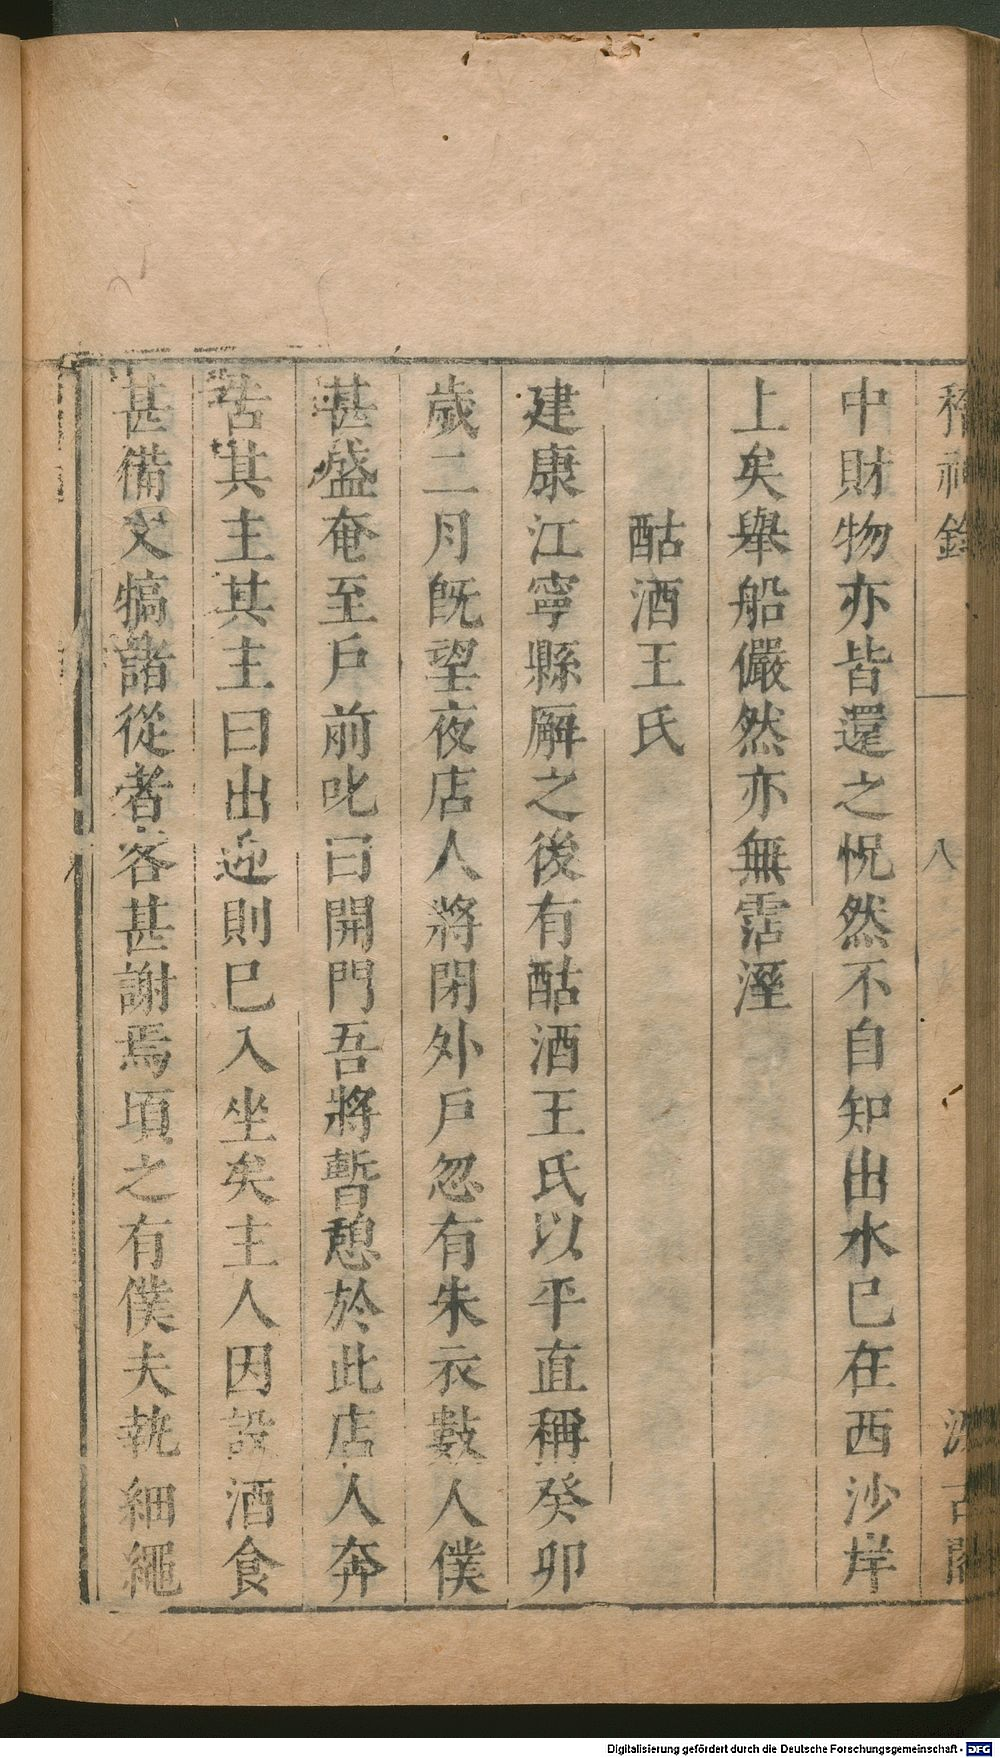 稽神錄
八
汲古閣
中財物亦皆還之怳然不自知出水已在西沙岸
上矣舉船儼然亦無霑溼
酤酒王氏
建康江寧縣廨之後有酤酒王氏以平直稱癸卯
歲二月既望夜店人將閉外戶忽有朱衣數人僕
甚盛奄至戶前叱曰開門吾將暫憩於此店人奔
告其主其主曰出迎則已入坐矣主人因設酒食
甚備又犒諸從者客甚謝焉頃之有僕夫執細繩
Digitalisierung gefördert durch die Deutsche Forschungsgemeinschaft - DFG